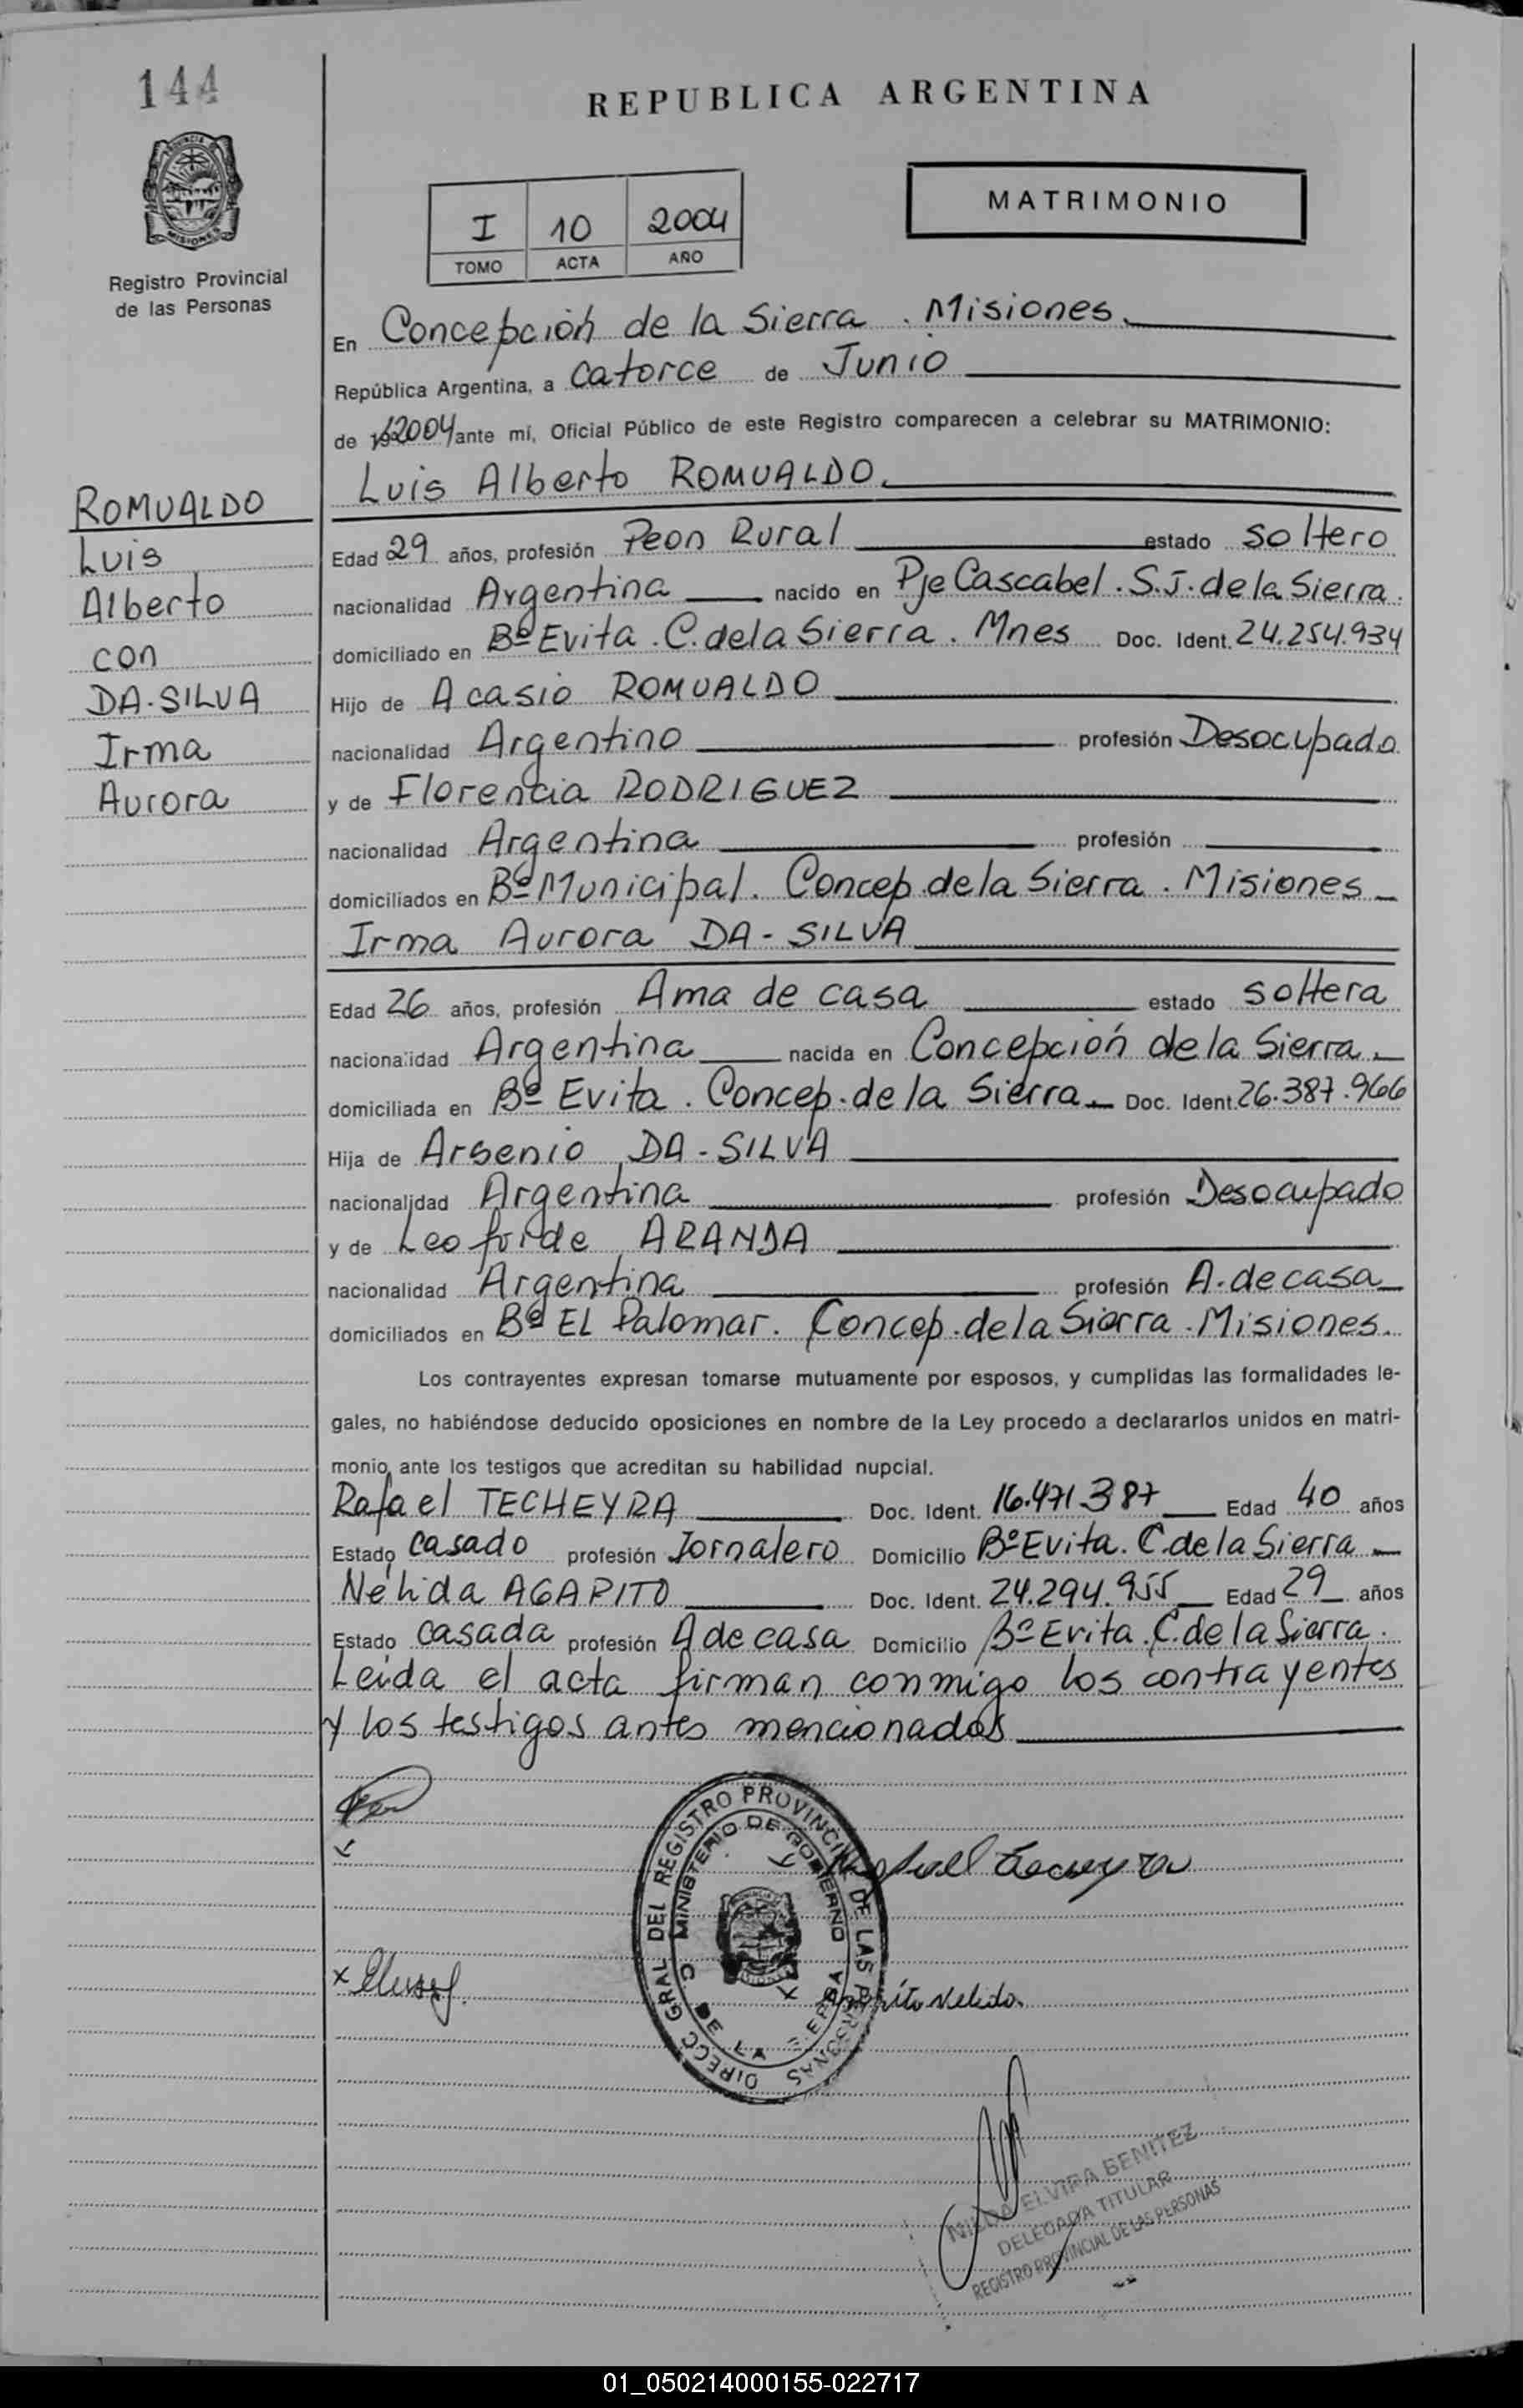 144
PROVINCIA DE
MISIONES
Registro Provincial
de las Personas
REPUBLICA ARGENTINA
I 10 2004
TOMO ACTA AÑO
MATRIMONIO
En Concepción de la Sierra . Misiones.
República Argentina, a catorce de Junio
de 2004 ante mí, Oficial Público de este Registro comparecen a celebrar su MATRIMONIO:
ROMUALDO
Luis
Alberto
con
DA-SILVA
Irma
Aurora
Luis Alberto ROMUALDO.
Edad 29 años, profesión Peon Rural estado soltero
nacionalidad Argentina nacido en Pje Cascabel . S.J. de la Sierra.
domiciliado en Bº Evita . C. de la Sierra . Mnes Doc. Ident. 24.254.934
Hijo de Acasio ROMUALDO
nacionalidad Argentino profesión Desocupado
y de Florencia RODRIGUEZ
nacionalidad Argentina profesión
domiciliados en Bº Municipal. Concep. de la Sierra . Misiones
Irma Aurora DA-SILVA
Edad 26 años, profesión Ama de casa estado soltera
nacionalidad Argentina nacida en Concepción de la Sierra
domiciliada en Bº Evita . Concep. de la Sierra Doc. Ident. 26.387.966
Hija de Arsenio DA-SILVA
nacionalidad Argentina profesión Desocupado
y de Leofride ARANDA
nacionalidad Argentina profesión A. de casa
domiciliados en Bº EL Palomar. Concep. de la Sierra . Misiones.
Los contrayentes expresan tomarse mutuamente por esposos, y cumplidas las formalidades le-
gales, no habiéndose deducido oposiciones en nombre de la Ley procedo a declararlos unidos en matri-
monio ante los testigos que acreditan su habilidad nupcial.
Rafael TECHEYRA Doc. Ident. 16.471.387 Edad 40 años
Estado casado profesión Jornalero Domicilio Bº Evita. C. de la Sierra
Nélida AGAPITO Doc. Ident. 24.294.955 Edad 29 años
Estado casada profesión A de casa Domicilio Bº Evita. C. de la Sierra.
Leída el acta firman conmigo los contrayentes
y los testigos antes mencionados
DIRECC GRAL DEL REGISTRO PROVINCIAL DE LAS PERSONAS
MINISTERIO DE GOBIERNO
C. DE LA SIERRA
Nelida
NILDA ELVIRA BENITEZ
DELEGADA TITULAR
REGISTRO PROVINCIAL DE LAS PERSONAS
01_050214000155-022717